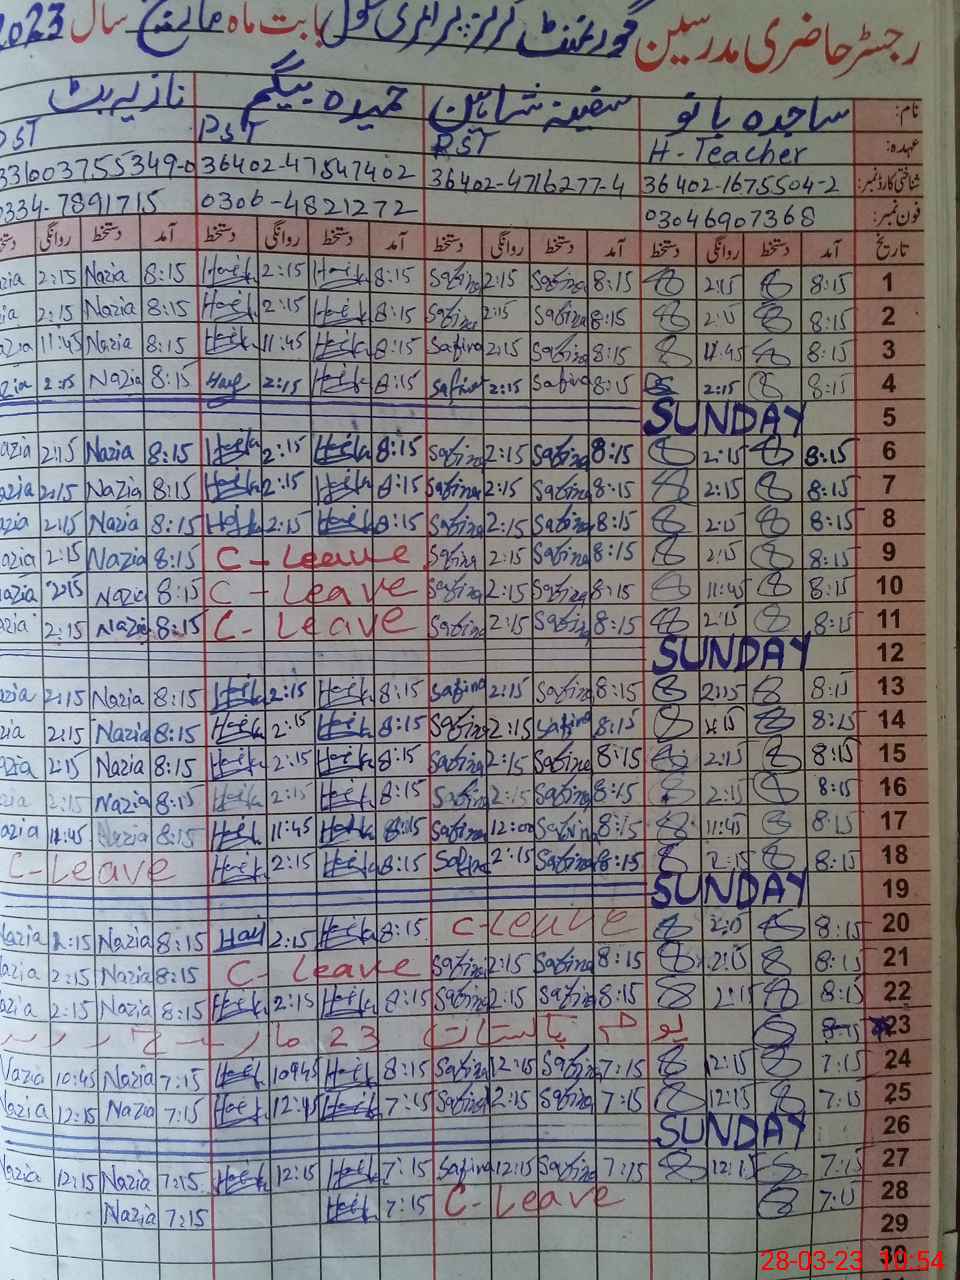 رجسٹر حاضری مدرسین گورنمنٹ گرلز پرائمری سکول بابت ماہ مارچ سال 2023
نام: ساجدہ بانو سفینہ شاہین حمیدہ بیگم نازیہ بٹ
عہدہ: H-Teacher PST PST PST
شناختی کارڈ نمبر: 36402-1675504-2 36402-4716277-4 36402-47547402 331003755349-0
فون نمبر: 03046907368 0306-4821272 0334-7891715
تاریخ آمد دستخط روانگی دستخط آمد دستخط روانگی دستخط آمد دستخط روانگی دستخط آمد دستخط روانگی دستخط
1 8:15 2:15 8:15 Safina 2:15 Safina 8:15 2:15 8:15 Nazia 2:15 Nazia
2 8:15 2:15 8:15 Safina 2:15 Safina 8:15 2:15 8:15 Nazia 2:15
3 8:15 11:45 8:15 Safina 2:15 Safina 8:15 11:45 8:15 Nazia 11:45 Nazia
4 8:15 2:15 8:15 Safina 2:15 Safina 8:15 2:15 8:15 Nazia 2:15 Nazia
5 SUNDAY
6 8:15 2:15 8:15 Safina 2:15 Safina 8:15 2:15 8:15 Nazia 2:15 Nazia
7 8:15 2:15 8:15 Safina 2:15 Safina 8:15 2:15 8:15 Nazia 2:15 Nazia
8 8:15 2:15 8:15 Safina 2:15 Safina 8:15 2:15 8:15 Nazia 2:15 Nazia
9 8:15 2:15 8:15 Safina 2:15 Safina C-Leave 8:15 Nazia 2:15 Nazia
10 8:15 11:45 8:15 Safina 2:15 Safina C-Leave 8:15 Nazia 2:15 Nazia
11 8:15 2:15 8:15 Safina 2:15 Safina C-Leave 8:15 Nazia 2:15 Nazia
12 SUNDAY
13 8:15 2:15 8:15 Safina 2:15 Safina 8:15 2:15 8:15 Nazia 2:15 Nazia
14 8:15 2:15 8:15 Safina 2:15 Safina 8:15 2:15 8:15 Nazia 2:15
15 8:15 2:15 8:15 Safina 2:15 Safina 8:15 2:15 8:15 Nazia 2:15 Nazia
16 8:15 2:15 8:15 Safina 2:15 Safina 8:15 2:15 8:15 Nazia 2:15
17 8:15 11:45 8:15 Safina 12:00 Safina 8:15 11:45 8:15 Nazia 11:45 Nazia
18 8:15 2:15 8:15 Safina 2:15 Safina 8:15 2:15 C-Leave
19 SUNDAY
20 8:15 2:15 C-Leave 8:15 2:15 8:15 Nazia 2:15 Nazia
21 8:15 2:15 8:15 Safina 2:15 Safina C-Leave 8:15 Nazia 2:15 Nazia
22 8:15 2:15 8:15 Safina 2:15 Safina 8:15 2:15 8:15 Nazia 2:15 Nazia
23 8:15 یوم پاکستان 23 مارچ
24 7:15 12:15 7:15 Safina 12:15 Safina 8:15 7:15 Nazia 10:45 Nazia
25 7:15 12:15 7:15 Safina 12:15 Safina 7:15 12:15 7:15 Nazia 12:15 Nazia
26 SUNDAY
27 7:15 12:15 7:15 Safina 12:15 Safina 7:15 12:15 7:15 Nazia 12:15 Nazia
28 7:15 C-Leave 7:15 7:15 Nazia
29
30
28-03-23 10:54